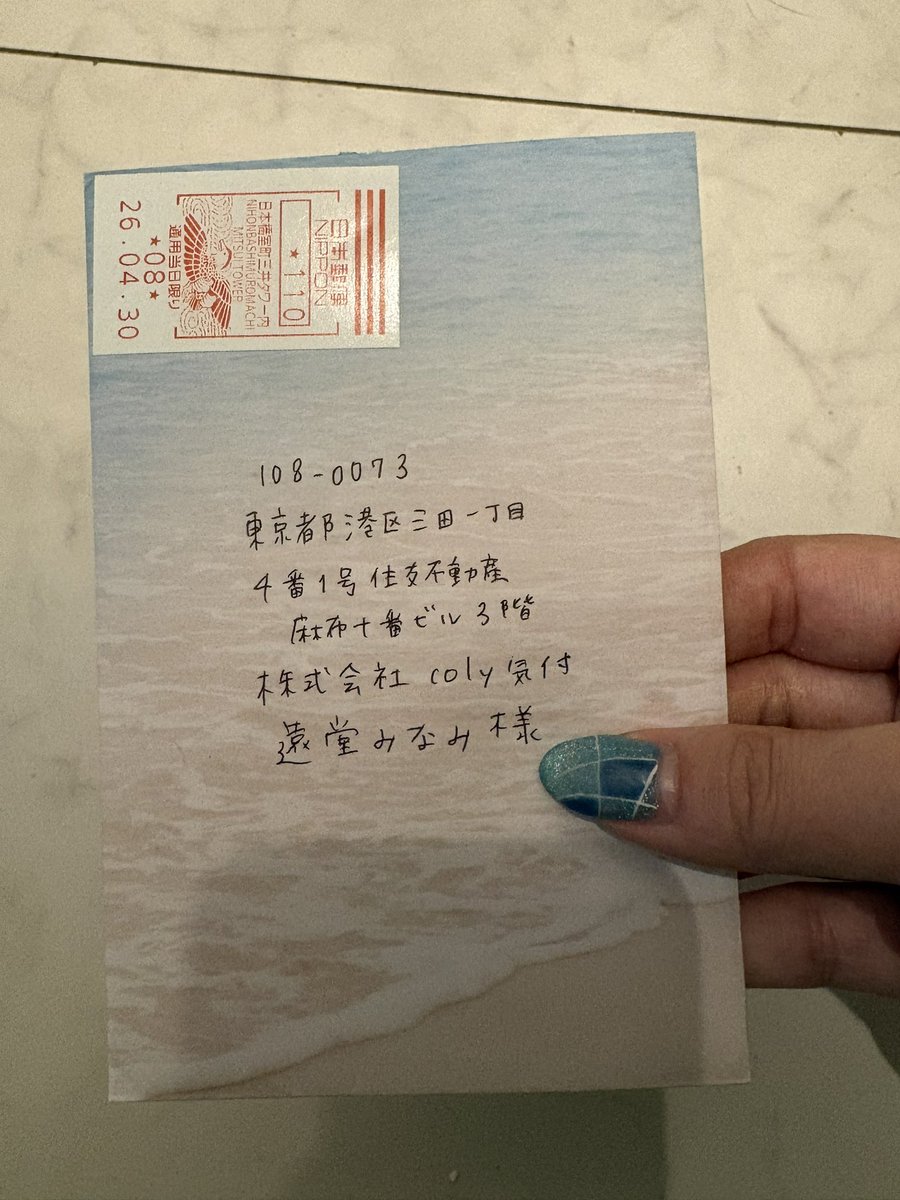 日本郵便
NIPPON
★110
日本橋室町三井タワー内
NIHONBASHIMUROMACHI
MITSUITOWER
適用当日限り
★08★
26.04.30
108-0073
東京都港区三田一丁目
4番1号住友不動産
麻布十番ビル3階
株式会社coly気付
遠堂みなみ様